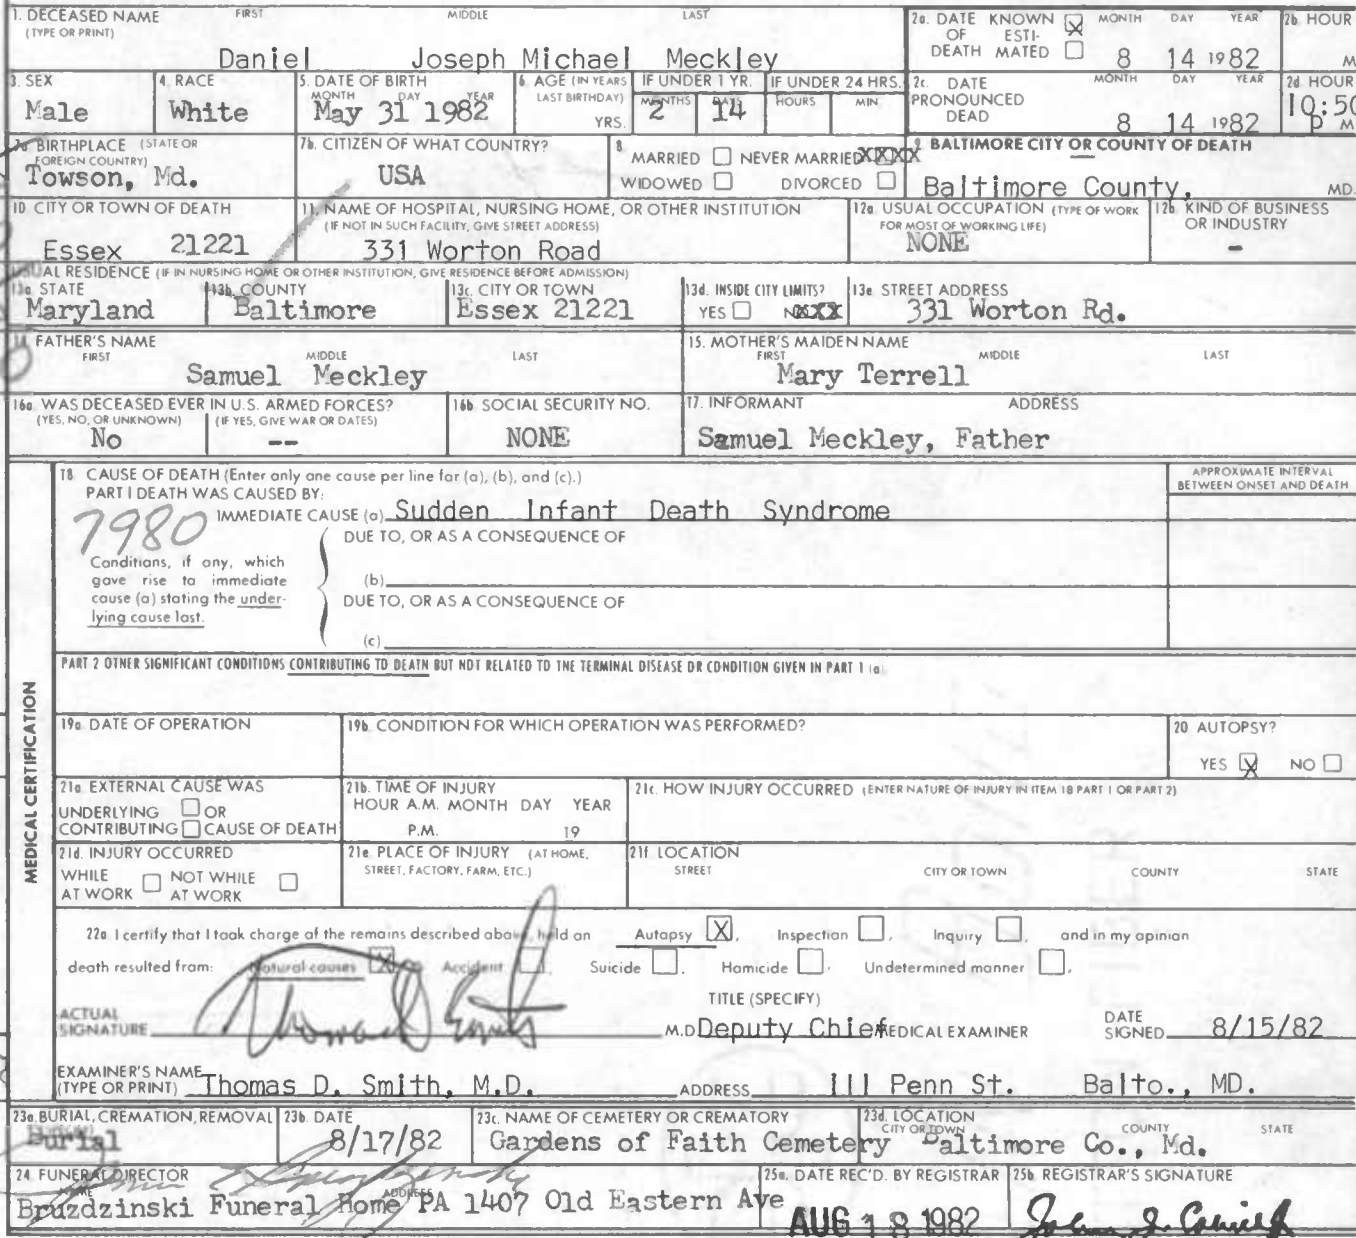 1. DECEASED NAME FIRST MIDDLE LAST
(TYPE OR PRINT)
Daniel Joseph Michael Meckley
2a. DATE KNOWN X MONTH DAY YEAR
OF ESTI-
DEATH MATED 8 14 1982
2b HOUR
M
3. SEX
Male
4. RACE
White
5. DATE OF BIRTH
MONTH DAY YEAR
May 31 1982
6. AGE (IN YEARS
LAST BIRTHDAY)
YRS.
IF UNDER 1 YR.
MONTHS DAYS
2 14
IF UNDER 24 HRS.
HOURS MIN.
2c. DATE MONTH DAY YEAR
PRONOUNCED
DEAD 8 14 1982
2d HOUR
10:50
P M
7a BIRTHPLACE (STATE OR
FOREIGN COUNTRY)
Towson, Md.
7b. CITIZEN OF WHAT COUNTRY?
USA
8.
MARRIED NEVER MARRIED XXXX
WIDOWED DIVORCED
9. BALTIMORE CITY OR COUNTY OF DEATH
Baltimore County, MD.
10. CITY OR TOWN OF DEATH
Essex 21221
11. NAME OF HOSPITAL, NURSING HOME, OR OTHER INSTITUTION
(IF NOT IN SUCH FACILITY, GIVE STREET ADDRESS)
331 Worton Road
12a. USUAL OCCUPATION (TYPE OF WORK
FOR MOST OF WORKING LIFE)
NONE
12b. KIND OF BUSINESS
OR INDUSTRY
-
USUAL RESIDENCE (IF IN NURSING HOME OR OTHER INSTITUTION, GIVE RESIDENCE BEFORE ADMISSION)
13a STATE
Maryland
13b. COUNTY
Baltimore
13c. CITY OR TOWN
Essex 21221
13d. INSIDE CITY LIMITS?
YES NXXX
13e STREET ADDRESS
331 Worton Rd.
14. FATHER'S NAME
FIRST MIDDLE LAST
Samuel Meckley
15. MOTHER'S MAIDEN NAME
FIRST MIDDLE LAST
Mary Terrell
16a. WAS DECEASED EVER IN U.S. ARMED FORCES?
(YES, NO, OR UNKNOWN) (IF YES, GIVE WAR OR DATES)
No --
16b SOCIAL SECURITY NO.
NONE
17. INFORMANT ADDRESS
Samuel Meckley, Father
MEDICAL CERTIFICATION
18 CAUSE OF DEATH (Enter only one cause per line for (a), (b), and (c).)
PART I DEATH WAS CAUSED BY:
APPROXIMATE INTERVAL
BETWEEN ONSET AND DEATH
7980
IMMEDIATE CAUSE (a) Sudden Infant Death Syndrome
DUE TO, OR AS A CONSEQUENCE OF
Conditions, if any, which
gave rise to immediate
cause (a) stating the under-
lying cause last.
(b)
DUE TO, OR AS A CONSEQUENCE OF
(c)
PART 2 OTHER SIGNIFICANT CONDITIONS CONTRIBUTING TO DEATH BUT NOT RELATED TO THE TERMINAL DISEASE OR CONDITION GIVEN IN PART 1 (a).
19a. DATE OF OPERATION
19b. CONDITION FOR WHICH OPERATION WAS PERFORMED?
20 AUTOPSY?
YES X NO
21a. EXTERNAL CAUSE WAS
UNDERLYING OR
CONTRIBUTING CAUSE OF DEATH
21b. TIME OF INJURY
HOUR A.M. MONTH DAY YEAR
P.M. 19
21c. HOW INJURY OCCURRED (ENTER NATURE OF INJURY IN ITEM 18 PART 1 OR PART 2)
21d. INJURY OCCURRED
WHILE NOT WHILE
AT WORK AT WORK
21e PLACE OF INJURY (AT HOME,
STREET, FACTORY, FARM, ETC.)
21f LOCATION
STREET CITY OR TOWN COUNTY STATE
22a I certify that I took charge of the remains described above, held an Autopsy X, Inspection , Inquiry , and in my opinion
death resulted from: Natural causes X Accident , Suicide , Homicide , Undetermined manner .
ACTUAL
SIGNATURE
TITLE (SPECIFY)
M.D. Deputy Chief MEDICAL EXAMINER
DATE
SIGNED 8/15/82
EXAMINER'S NAME
(TYPE OR PRINT) Thomas D. Smith, M.D. ADDRESS 111 Penn St. Balto., MD.
23a. BURIAL, CREMATION, REMOVAL
Burial
23b. DATE
8/17/82
23c. NAME OF CEMETERY OR CREMATORY
Gardens of Faith Cemetery
23d. LOCATION
CITY OR TOWN COUNTY STATE
Baltimore Co., Md.
24. FUNERAL DIRECTOR
NAME ADDRESS
Bruzdzinski Funeral Home PA 1407 Old Eastern Ave
25a. DATE REC'D. BY REGISTRAR
AUG 18 1982
25b. REGISTRAR'S SIGNATURE